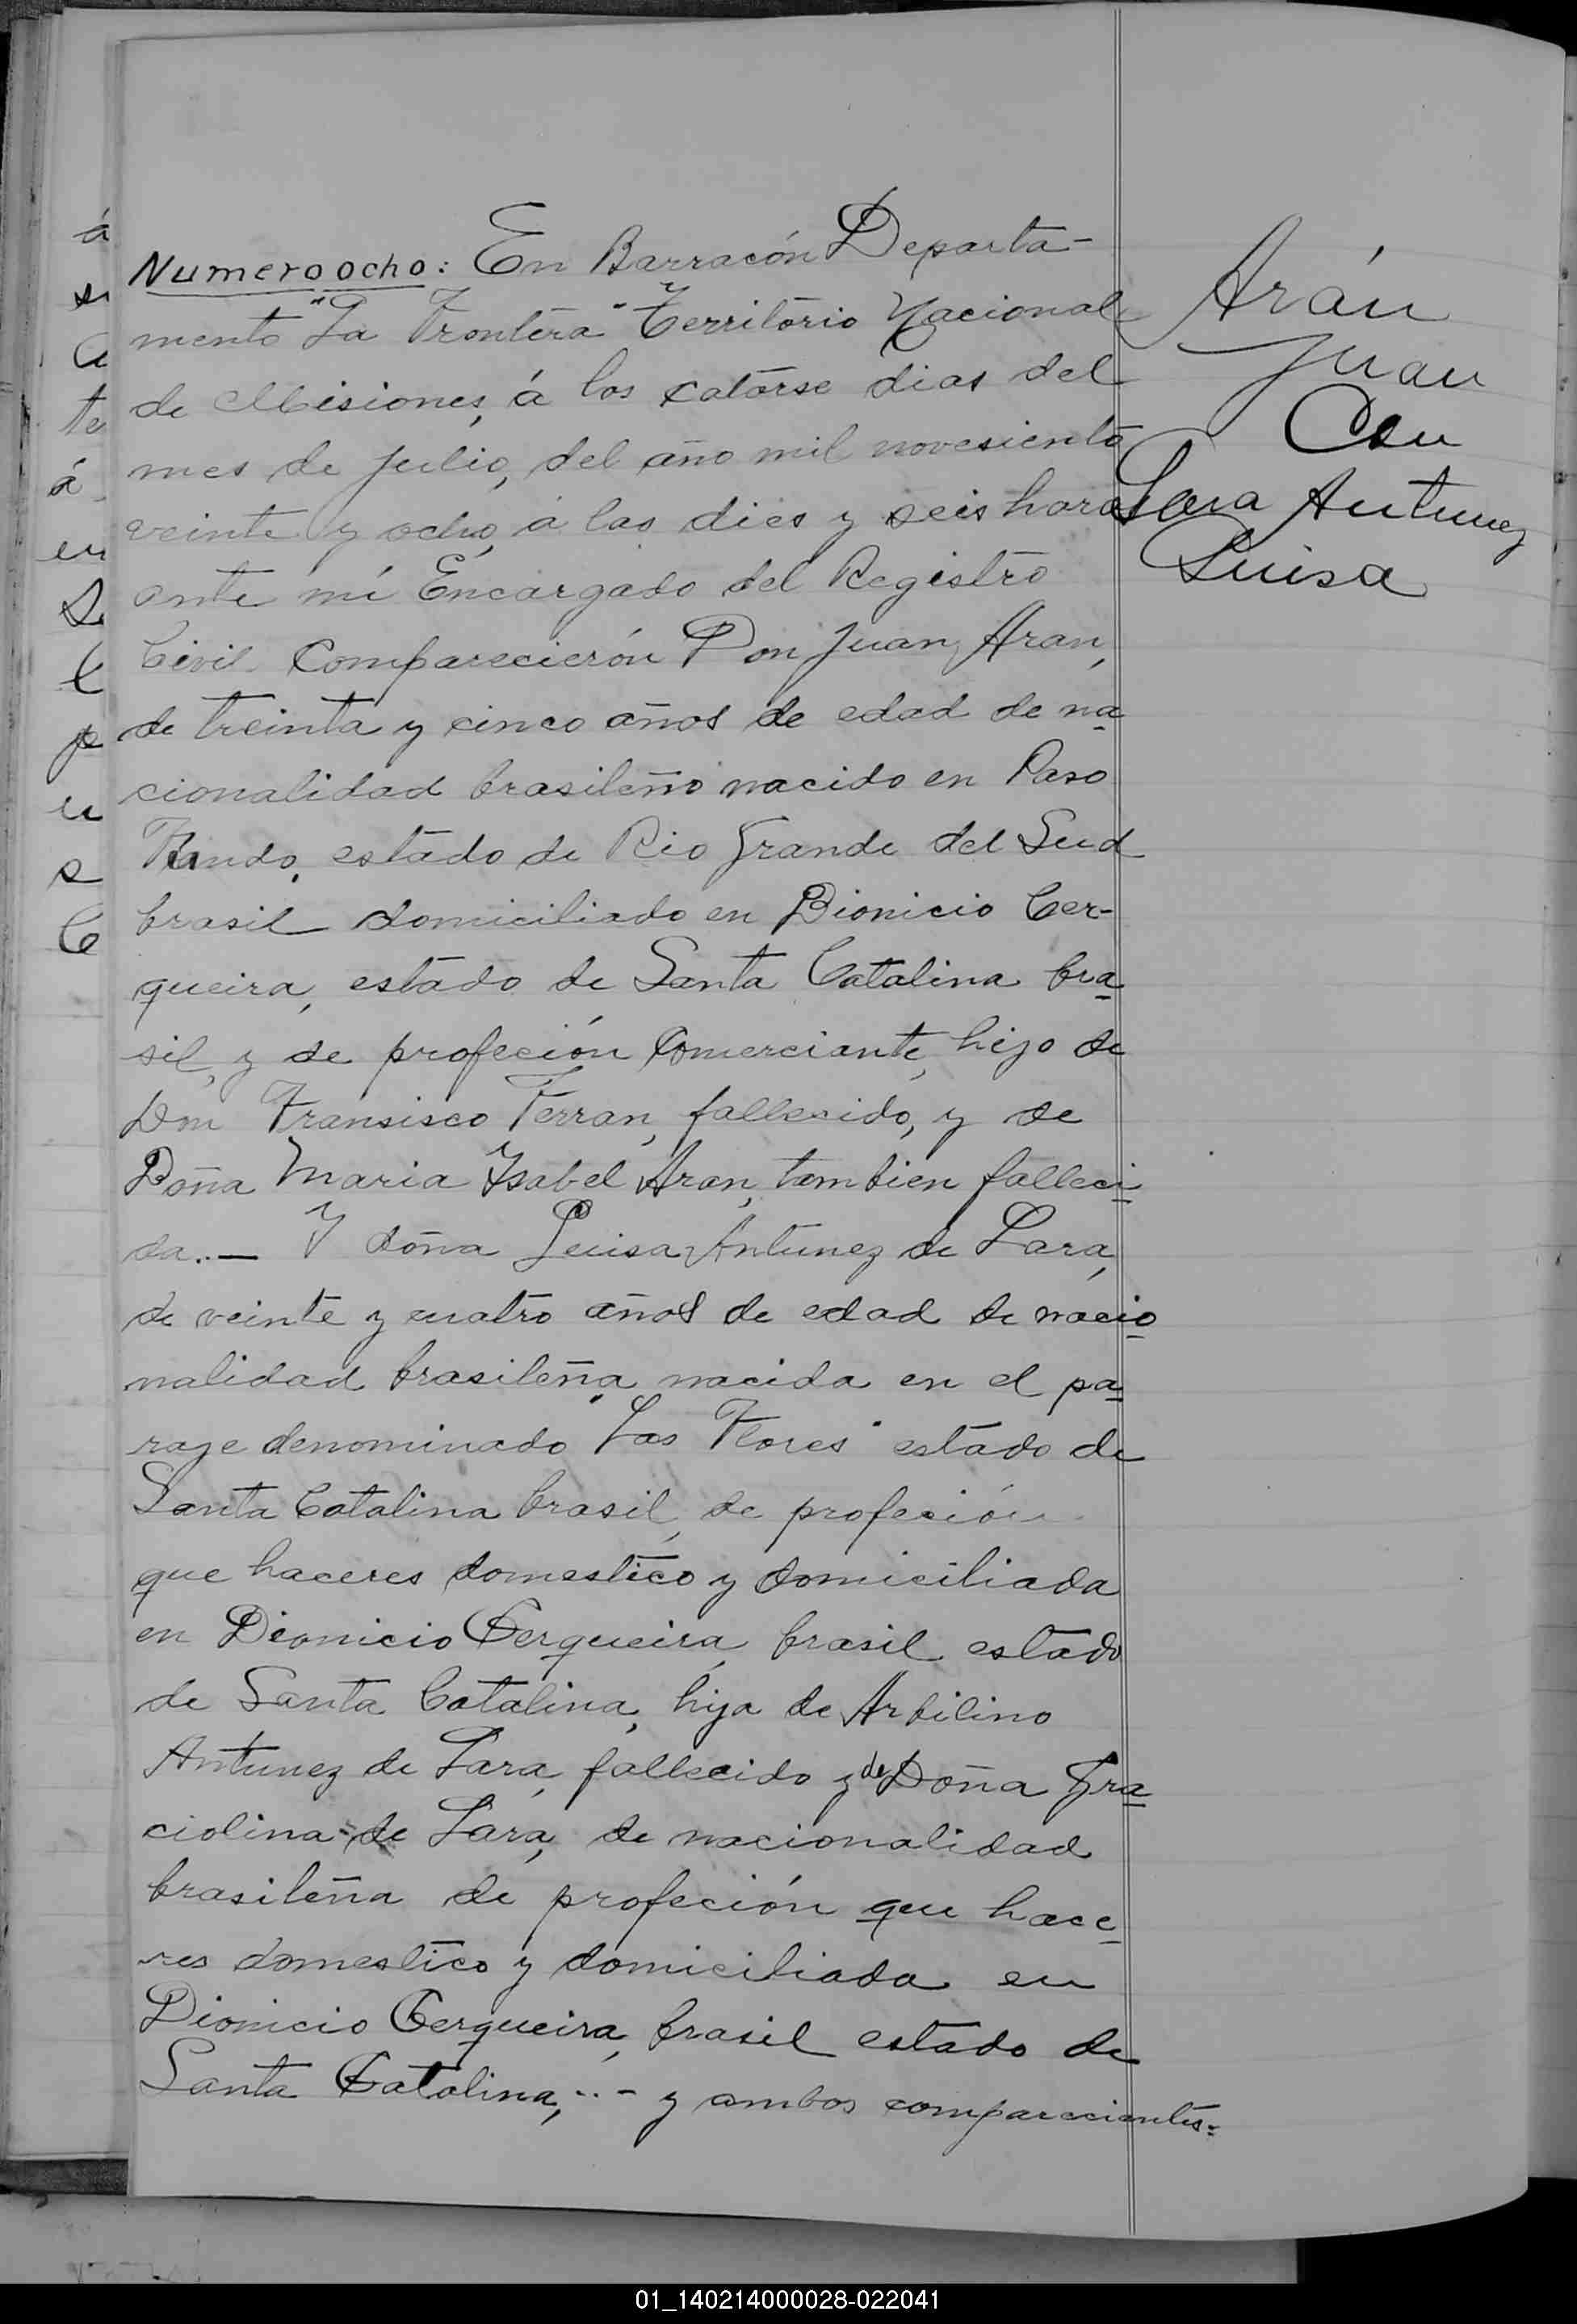 Numero ocho: En Barracón Departa-
mento "La Frontera" Territorio Nacional
de Misiones, á los catorse dias del
mes de julio, del año mil novesiento
veinte y ocho, a las dies y seis horas
ante mi Encargado del Registro
Civil Comparecierón Don Juan Aran,
de treinta y cinco años de edad de na
cionalidad brasileño nacido en Paso
Fundo, estado de Rio Grande del Sud
brasil domiciliado en Dionicio Cer-
queira, estado de Santa Catalina bra
sil, y de profeción Comerciante, hijo de
Don Fransisco Ferran, fallecido, y de
Doña Maria Ysabel Aran, tambien falleci
da.— Y doña Luisa Antunez de Lara,
de veinte y cuatro años de edad de nacio
nalidad brasileña nacida en el pa
raje denominado "Las Flores" estado de
Santa Catalina brasil, de profeción
que haceres domestico y domiciliada
en Dionicio Cerqueira, brasil estado
de Santa Catalina, hija de Arbilino
Antunez de Lara, fallecido y de Doña Gra
ciolina de Lara, de nacionalidad
brasileña de profeción que hace
res domestico y domiciliada en
Dionicio Cerqueira, brasil estado de
Santa Catalina, ..- y ambos comparecientes=
Arán
Juan
Con
Lara Antunez
Luisa
á
te
á
en
01_140214000028-022041